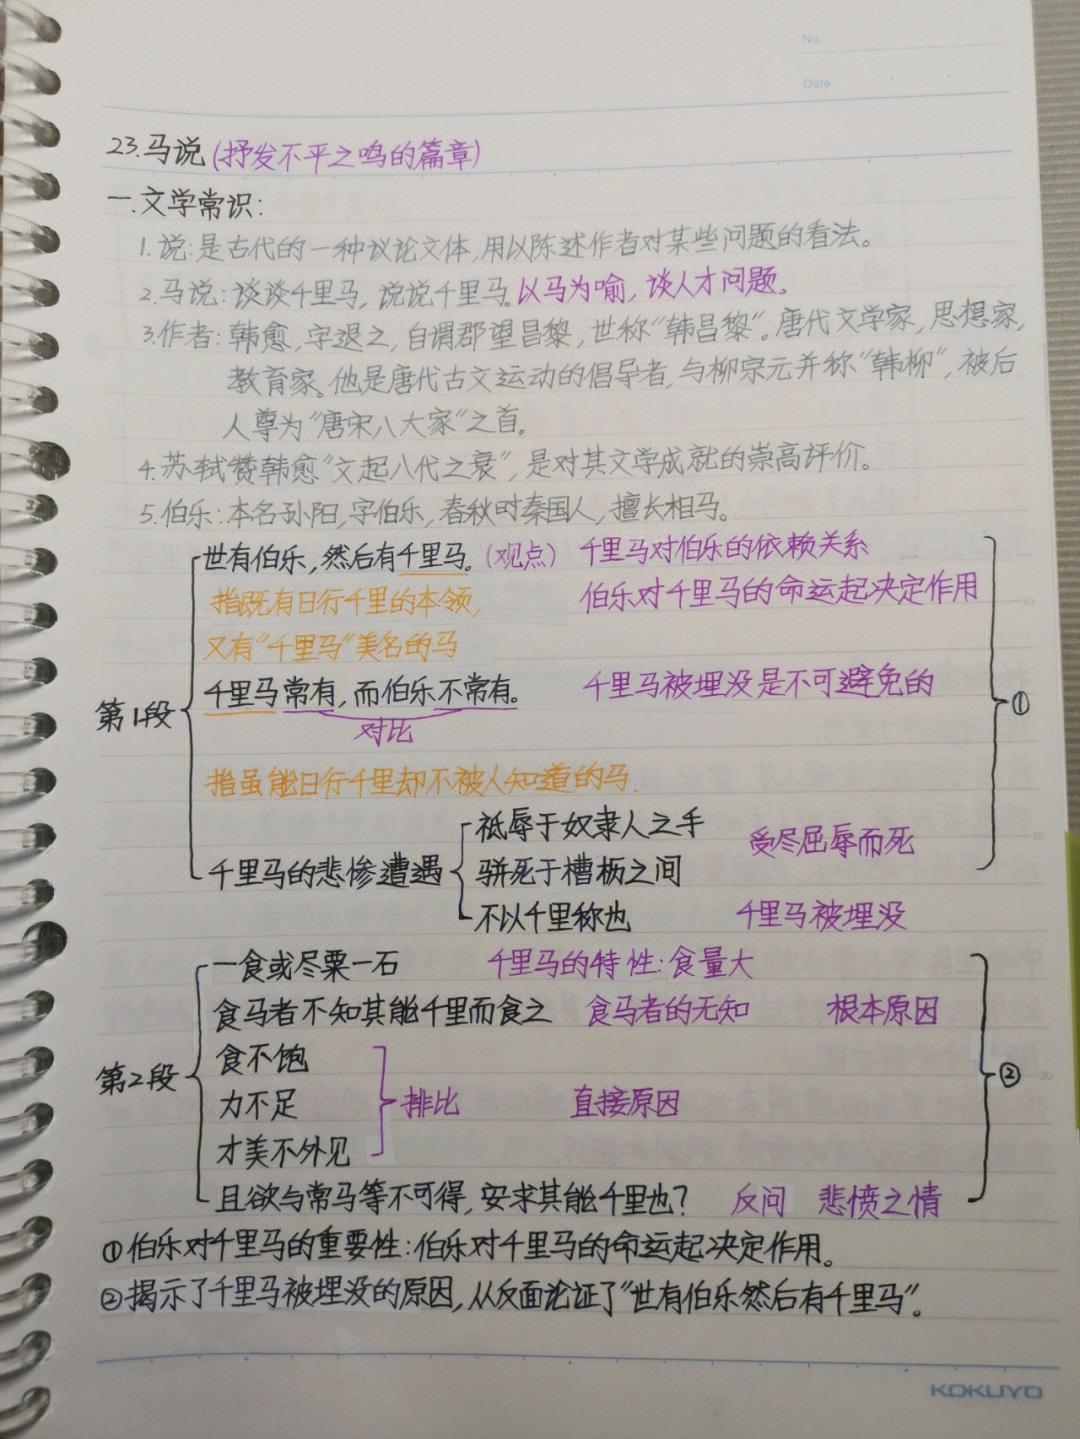 No.
Date
23.马说(抒发不平之鸣的篇章)
一.文学常识:
1.说:是古代的一种议论文体,用以陈述作者对某些问题的看法。
2.马说:谈谈千里马,说说千里马。以马为喻,谈人才问题。
3.作者:韩愈,字退之,自谓郡望昌黎,世称"韩昌黎"。唐代文学家,思想家,
教育家。他是唐代古文运动的倡导者,与柳宗元并称"韩柳",被后
人尊为"唐宋八大家"之首。
4.苏轼赞韩愈"文起八代之衰",是对其文学成就的崇高评价。
5.伯乐:本名孙阳,字伯乐,春秋时秦国人,擅长相马。
世有伯乐,然后有千里马。(观点) 千里马对伯乐的依赖关系
指既有日行千里的本领, 伯乐对千里马的命运起决定作用
又有"千里马"美名的马
千里马常有,而伯乐不常有。 千里马被埋没是不可避免的
第1段 ①
对比
指虽能日行千里却不被人知道的马.
祗辱于奴隶人之手
受尽屈辱而死
千里马的悲惨遭遇 骈死于槽枥之间
不以千里称也 千里马被埋没
一食或尽粟一石 千里马的特性:食量大
食马者不知其能千里而食之 食马者的无知 根本原因
食不饱
第2段 ②
力不足 排比 直接原因
才美不外见
且欲与常马等不可得,安求其能千里也? 反问 悲愤之情
①伯乐对千里马的重要性:伯乐对千里马的命运起决定作用。
②揭示了千里马被埋没的原因,从反面论证了"世有伯乐然后有千里马"。
KOKUYO